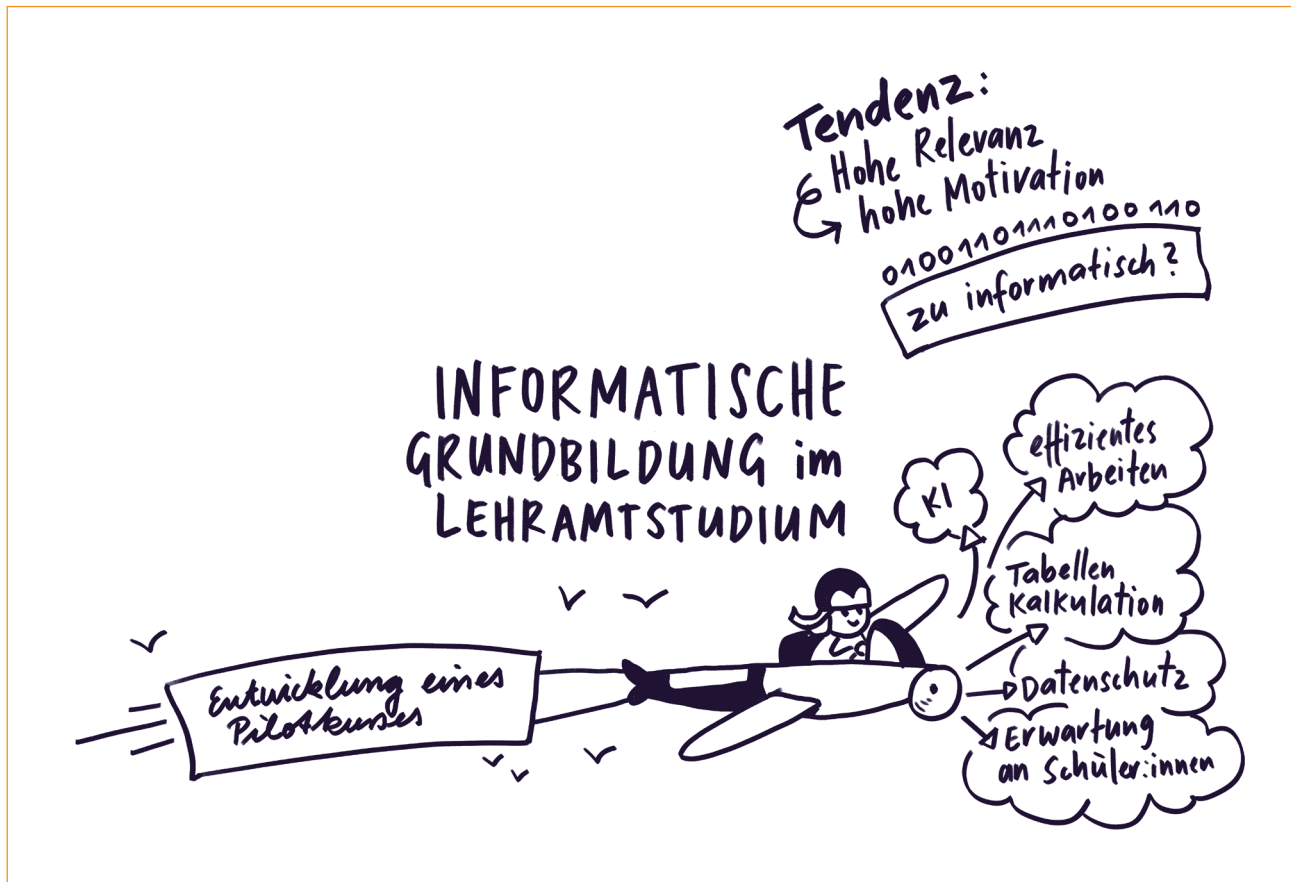 Tendenz:
Hohe Relevanz
hohe Motivation
010011011110100 110
zu informatisch?
INFORMATISCHE
GRUNDBILDUNG im
LEHRAMTSTUDIUM
KI
effizientes
Arbeiten
Tabellen
Kalkulation
Datenschutz
Erwartung
an Schüler:innen
Entwicklung eines
Pilotkurses